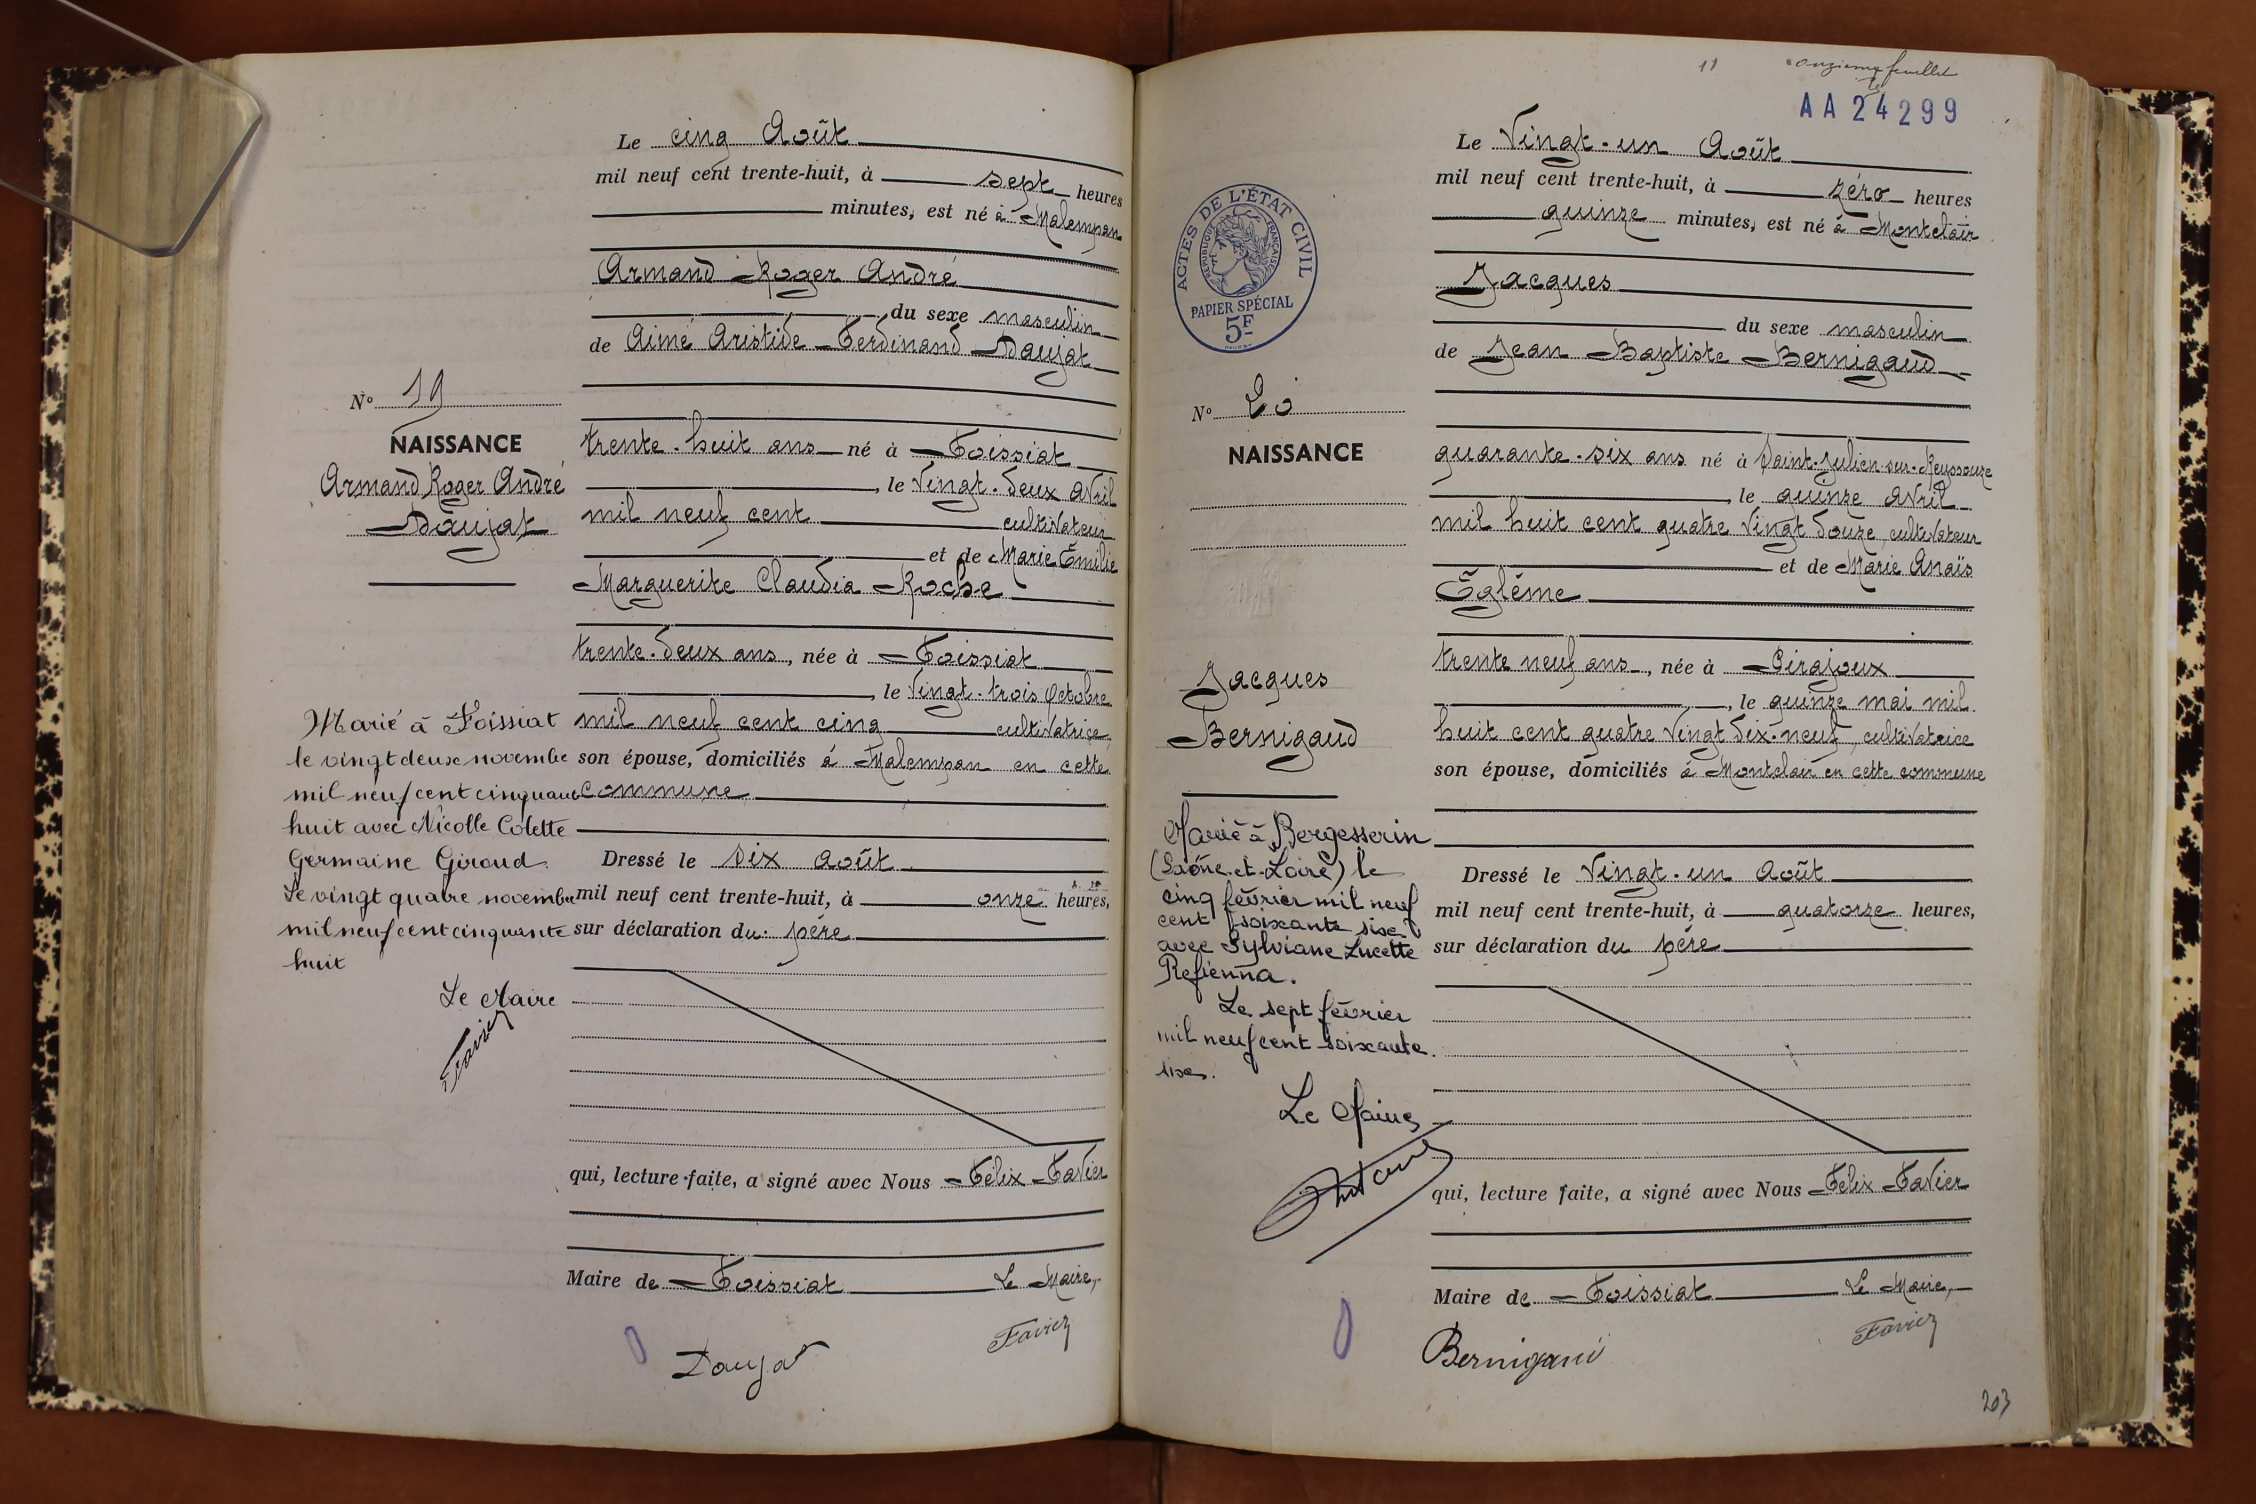 Le cinq Août
mil neuf cent trente-huit, à sept heures
minutes, est né à Malempan
Armand Roger André
du sexe masculin
de Aimé Aristide Ferdinand Daujat
N° 19
NAISSANCE
Armand Roger André
Daujat
trente-huit ans né à Foissiat
, le Vingt-deux Avril
mil neuf cent cultivateur
et de Marie Emilie
Marguerite Claudia Roche
trente-deux ans, née à Foissiat
, le Vingt-trois Octobre
mil neuf cent cinq cultivatrice,
son épouse, domiciliés à Malempan en cette
commune
Dressé le six août
mil neuf cent trente-huit, à onze heures,
sur déclaration du père
Marié à Foissiat
le vingt deux novembre
mil neuf cent cinquante
huit avec Nicolle Colette
Germaine Giroud.
Le vingt quatre novembre
mil neuf cent cinquante
huit
Le Maire
Favier
qui, lecture faite, a signé avec Nous Félix Favier
Maire de Foissiat Le Maire,
Favier
Daujat
11 onzième feuillet
AA 24299
Le Vingt-un Août
mil neuf cent trente-huit, à zéro heures
quinze minutes, est né à Montclair
Jacques
du sexe masculin
de Jean Baptiste Bernigaud
ACTES DE L'ÉTAT CIVIL
RÉPUBLIQUE FRANÇAISE
PAPIER SPÉCIAL
5F
N° 20
NAISSANCE
Jacques
Bernigaud
quarante-six ans né à Saint-Julien-sur-Reyssouze
, le quinze Avril
mil huit cent quatre Vingt douze, cultivateur
et de Marie Anaïs
Eglème
trente neuf ans, née à Cirajoux
, le quinze mai mil
huit cent quatre Vingt dix-neuf, cultivatrice
son épouse, domiciliés à Montclair en cette commune
Dressé le Vingt-un Août
mil neuf cent trente-huit, à quatorze heures,
sur déclaration du père
Marié à Bergesserin
(Saône-et-Loire) le
cinq février mil neuf
cent soixante six
avec Sylviane Lucette
Refienna.
Le sept février
mil neuf cent soixante
six.
Le Maire
qui, lecture faite, a signé avec Nous Félix Favier
Maire de Foissiat Le Maire,
Favier
Bernigaud
203